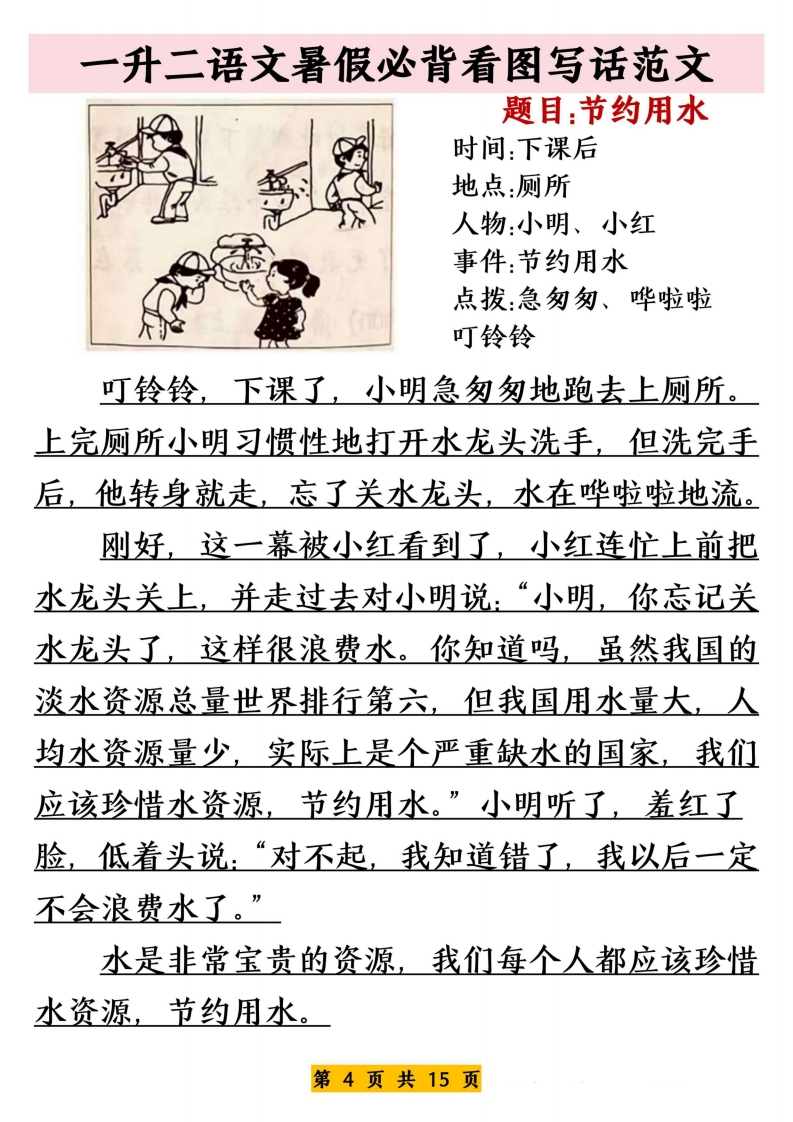 一升二语文暑假必背看图写话范文
题目:节约用水
时间:下课后
地点:厕所
人物:小明、小红
事件:节约用水
点拨:急匆匆、哗啦啦
叮铃铃
叮铃铃，下课了，小明急匆匆地跑去上厕所。
上完厕所小明习惯性地打开水龙头洗手，但洗完手
后，他转身就走，忘了关水龙头，水在哗啦啦地流。
刚好，这一幕被小红看到了，小红连忙上前把
水龙头关上，并走过去对小明说：“小明，你忘记关
水龙头了，这样很浪费水。你知道吗，虽然我国的
淡水资源总量世界排行第六，但我国用水量大，人
均水资源量少，实际上是个严重缺水的国家，我们
应该珍惜水资源，节约用水。”小明听了，羞红了
脸，低着头说：“对不起，我知道错了，我以后一定
不会浪费水了。”
水是非常宝贵的资源，我们每个人都应该珍惜
水资源，节约用水。
第 4 页 共 15 页